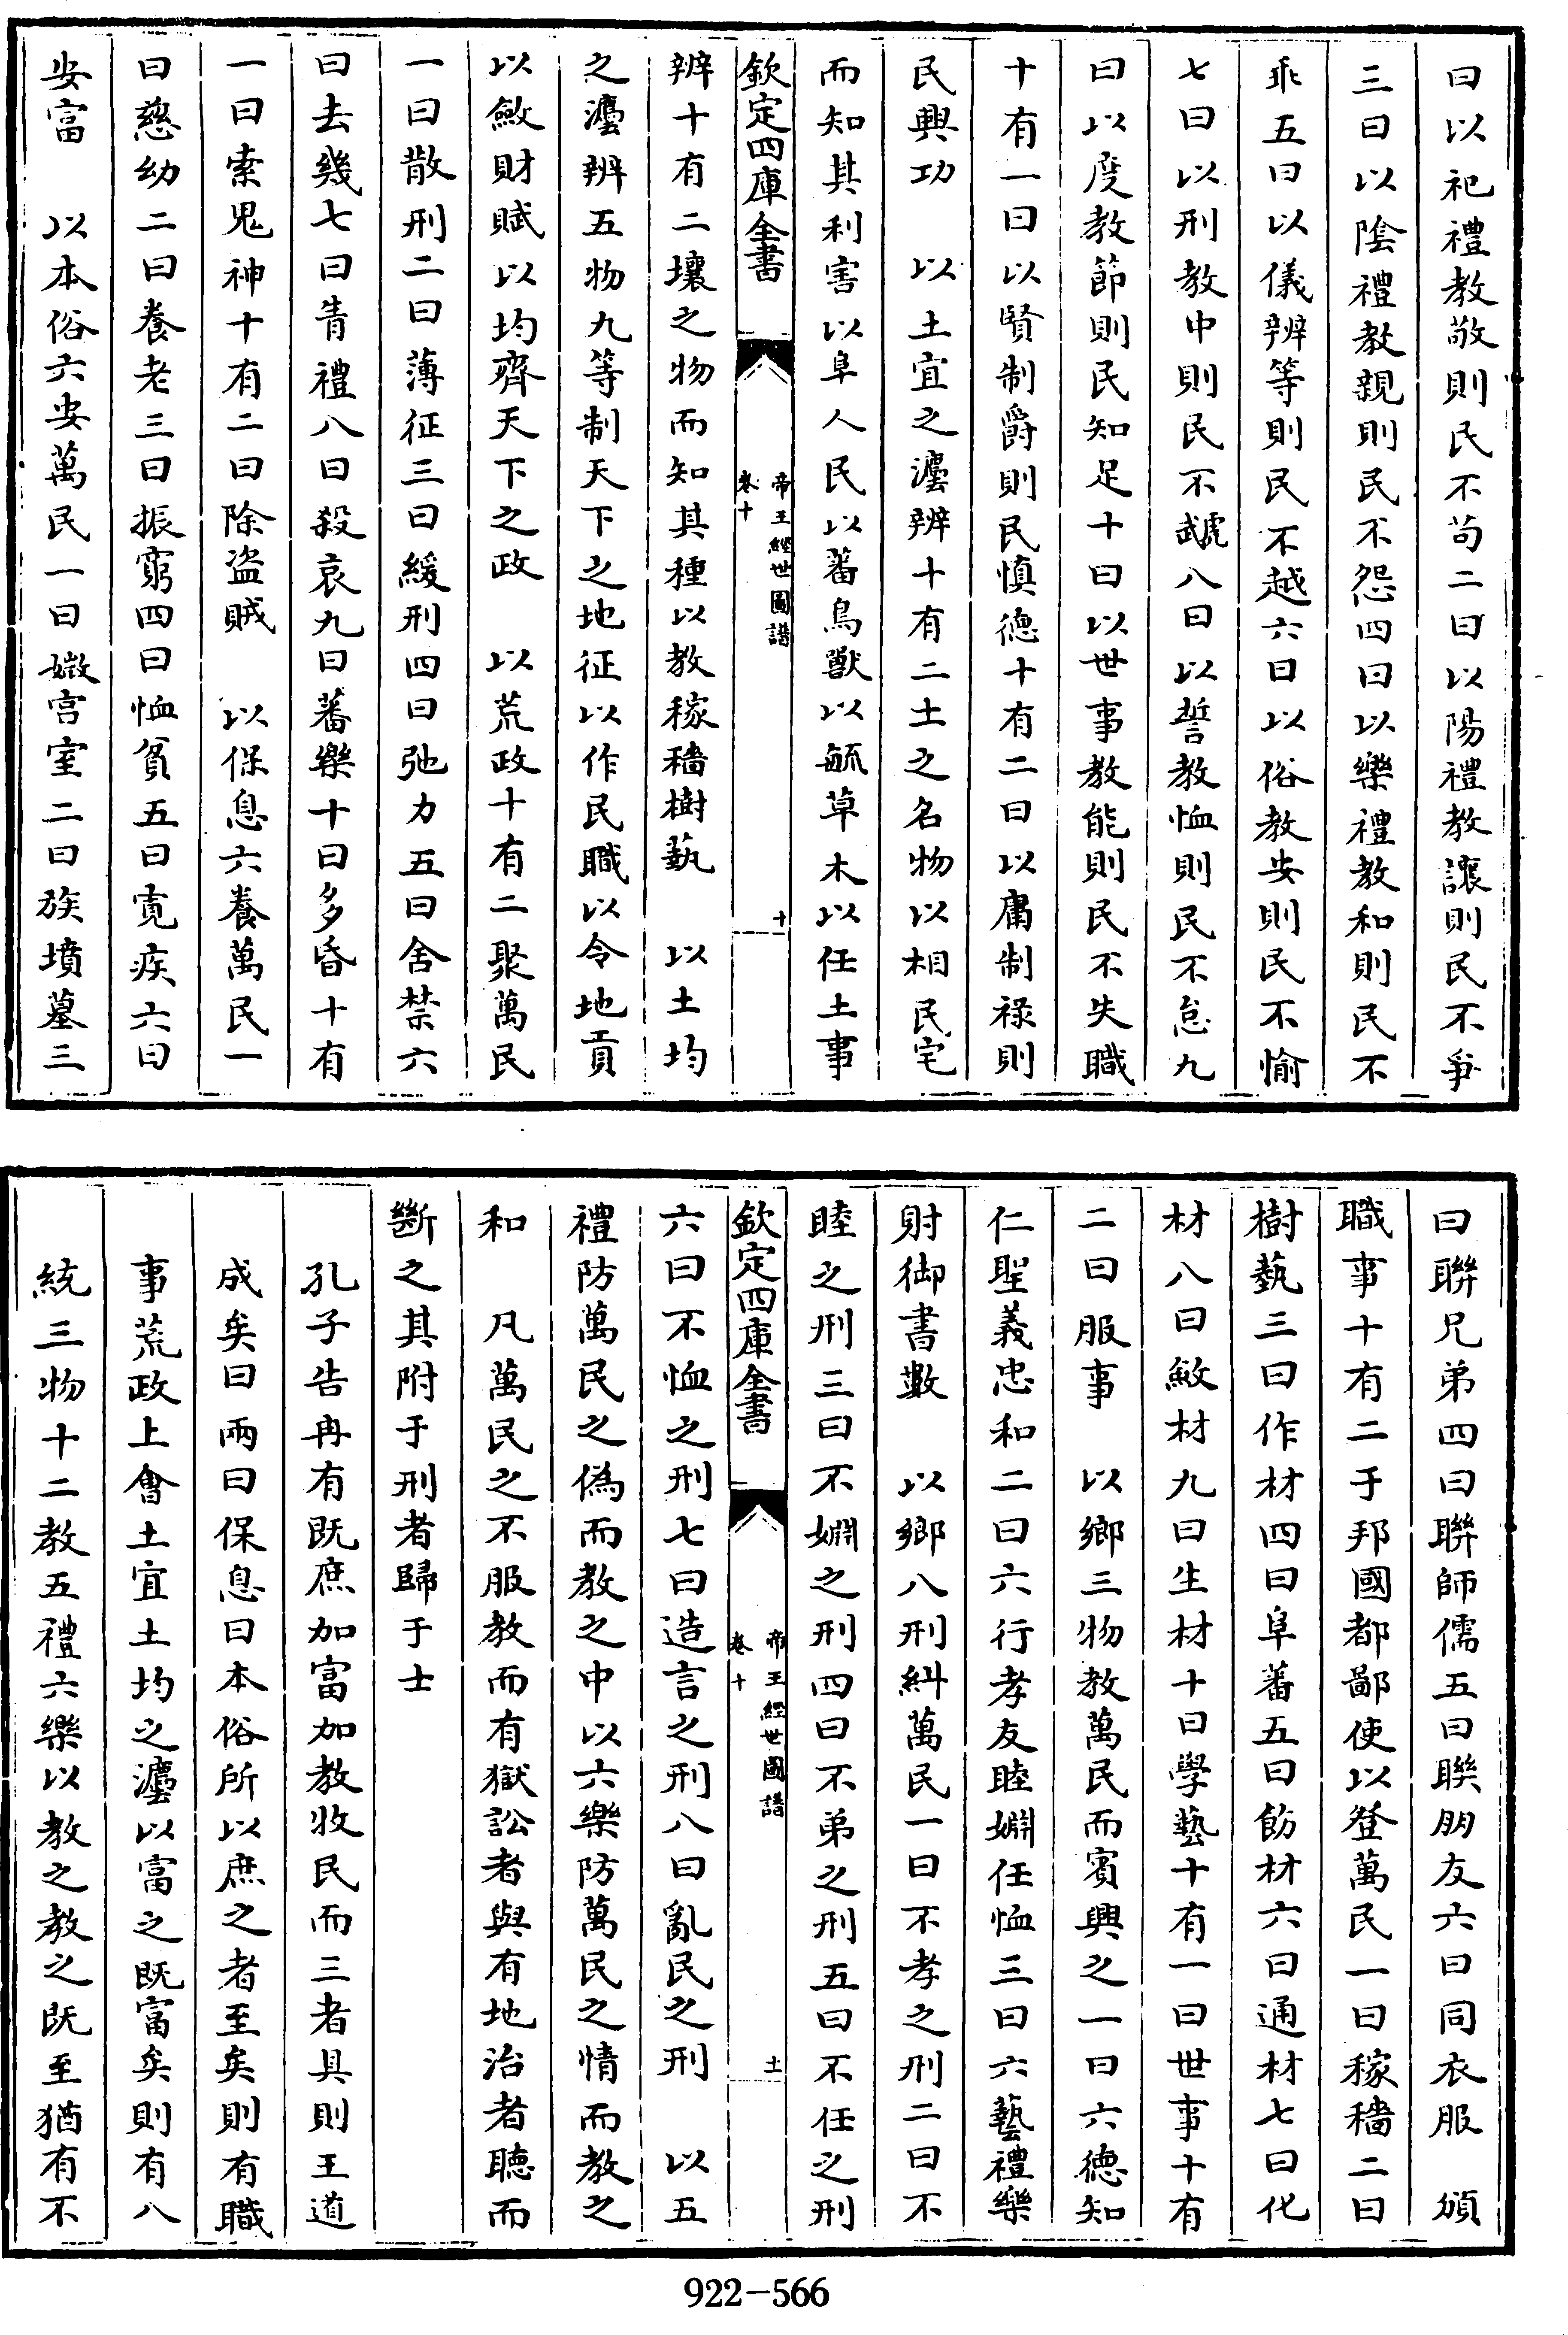 曰以祀禮教敬則民不苟二曰以陽禮教讓則民不爭
三曰以隂禮教親則民不怨四曰以樂禮教和則民不
乖五曰以儀辨等則民不越六曰以俗教安則民不愉
七曰以刑教中則民不虣八曰以誓教恤則民不怠九
曰以度教節則民知足十曰以世事教能則民不失職
十有一曰以賢制爵則民慎德十有二曰以庸制祿則
民興功　以土宜之灋辨十有二土之名物以相民宅
而知其利害以阜人民以蕃鳥獸以毓草木以任土事
欽定四庫全書
帝王經世圖譜
卷十
十
辨十有二壤之物而知其種以教稼穡樹蓺　以土均
之灋辨五物九等制天下之地征以作民職以令地貢
以斂財賦以均齊天下之政　以荒政十有二聚萬民
一曰散利二曰薄征三曰緩刑四曰弛力五曰舍禁六
曰去幾七曰眚禮八曰殺哀九曰蕃樂十曰多昏十有
一曰索鬼神十有二曰除盜賊　以保息六養萬民一
曰慈幼二曰養老三曰振窮四曰恤貧五曰寛疾六曰
安富　以本俗六安萬民一曰媺宫室二曰族墳墓三
曰聨兄弟四曰聨師儒五曰聨朋友六曰同衣服　頒
職事十有二于邦國都鄙使以登萬民一曰稼穡二曰
樹蓺三曰作材四曰阜蕃五曰飭材六曰通材七曰化
材八曰斂材九曰生材十曰學藝十有一曰世事十有
二曰服事　以鄉三物教萬民而賓興之一曰六德知
仁聖義忠和二曰六行孝友睦婣任恤三曰六藝禮樂
射御書數　以鄉八刑糾萬民一曰不孝之刑二曰不
睦之刑三曰不婣之刑四曰不弟之刑五曰不任之刑
欽定四庫全書
帝王經世圖譜
卷十
十一
六曰不恤之刑七曰造言之刑八曰亂民之刑　以五
禮防萬民之偽而教之中以六樂防萬民之情而教之
和　凡萬民之不服教而有獄訟者與有地治者聽而
斷之其附于刑者歸于士
孔子告冉有既庶加富加教牧民而三者具則王道
成矣曰兩曰保息曰本俗所以庶之者至矣則有職
事荒政土會土宜土均之灋以富之既富矣則有八
統三物十二教五禮六樂以教之教之既至猶有不
922-566